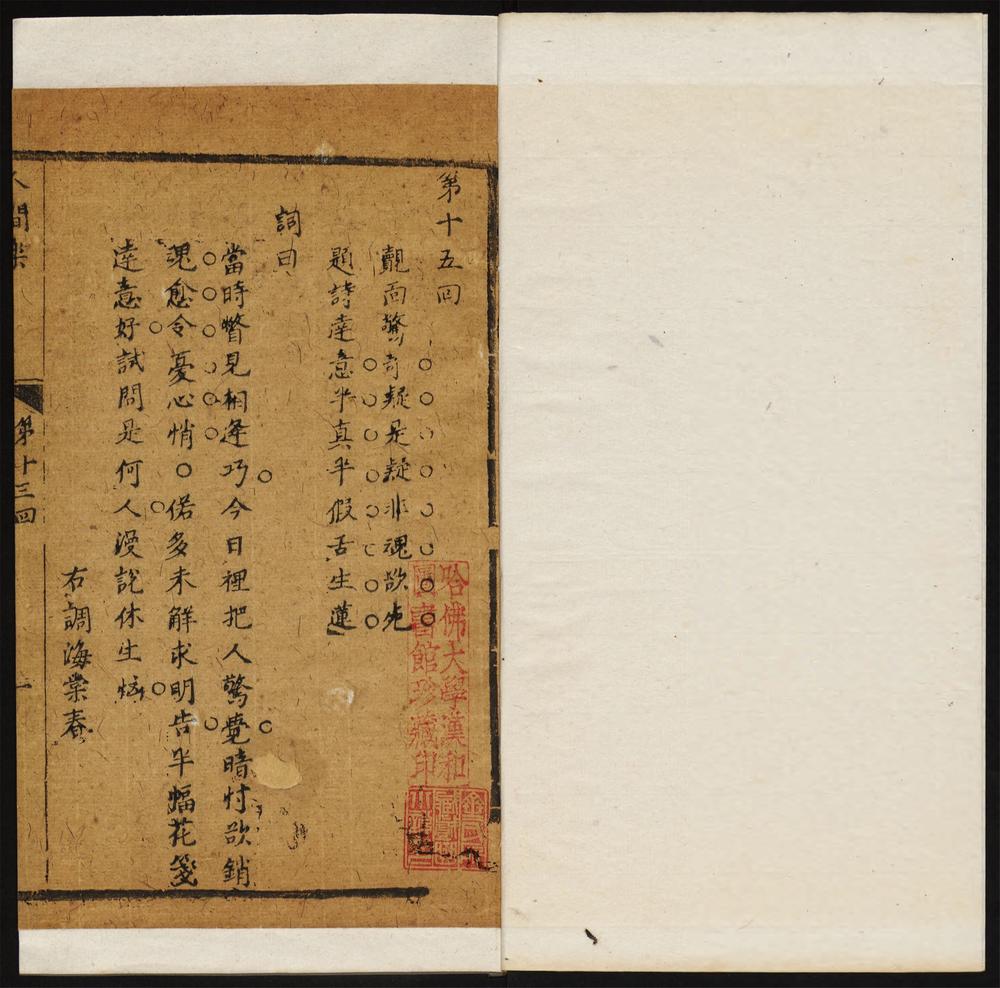 第十五回
覿面驚奇疑是疑非魂欲繞
題詩達意半真半假舌生蓮
詞曰
當時瞥見相逢巧今日裡把人驚覺暗忖欲銷
魂愈令憂心悄○偌多未解求明告半幅花箋
達意好試問是何人漫說休生惱
右調海棠春
人間樂
第十三回
一
哈佛大學漢和
圖書館珍藏印